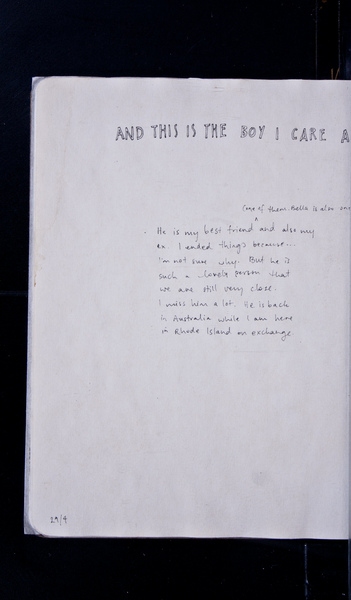 AND THIS IS THE BOY I CARE A
(one of them. Bella is also one
- He is my best friend ^ and also my
ex. I ended things because...
I'm not sure why. But he is
such a lovely person that
we are still very close.
I miss him a lot. He is back
in Australia while I am here
in Rhode Island on exchange
29/4